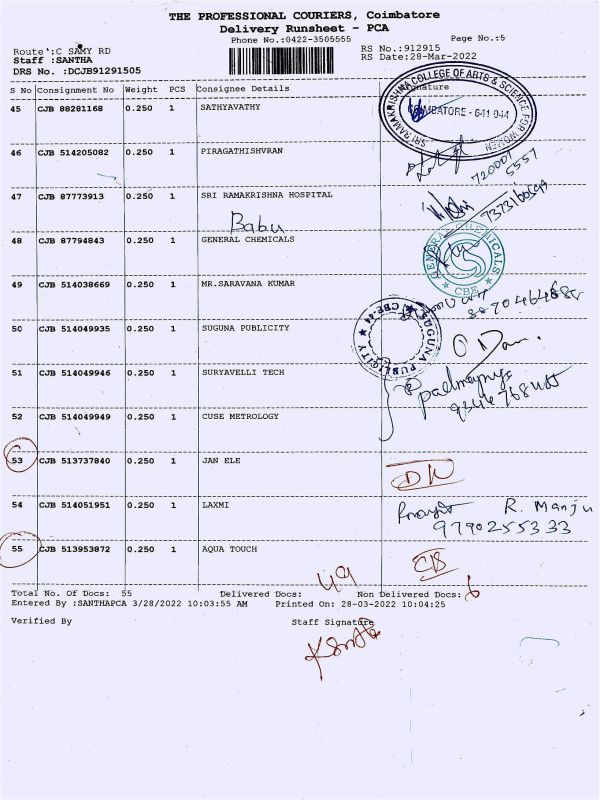 THE PROFESSIONAL COURIERS, Coimbatore
Delivery Runsheet - PCA
Phone No.:0422-3505555 Page No.:5
Route :C SAMY RD RS No.:912915
Staff :SANTHA RS Date:28-Mar-2022
DRS No. :DCJB91291505
S No Consignment No Weight PCS Consignee Details Signature
45 CJB 88281168 0.250 1 SATHYAVATHY
SRI RAMAKRISHNA COLLEGE OF ARTS & SCIENCE FOR WOMEN
COIMBATORE - 641 044
46 CJB 514205082 0.250 1 PIRAGATHISHVRAN
720007
5557
47 CJB 87773913 0.250 1 SRI RAMAKRISHNA HOSPITAL
Babu
48 CJB 87794843 0.250 1 GENERAL CHEMICALS
GENERAL CHEMICALS
CBE
49 CJB 514038669 0.250 1 MR.SARAVANA KUMAR
50 CJB 514049935 0.250 1 SUGUNA PUBLICITY
SUGUNA PUBLICITY
CBE-44
51 CJB 514049946 0.250 1 SURYAVELLI TECH
52 CJB 514049949 0.250 1 CUSE METROLOGY
53 CJB 513737840 0.250 1 JAN ELE
54 CJB 514051951 0.250 1 LAXMI R. Manju
9790255333
55 CJB 513953872 0.250 1 AQUA TOUCH
Total No. Of Docs: 55 Delivered Docs: 49 Non Delivered Docs: 6
Entered By :SANTHAPCA 3/28/2022 10:03:55 AM Printed On: 28-03-2022 10:04:25
Verified By Staff Signature